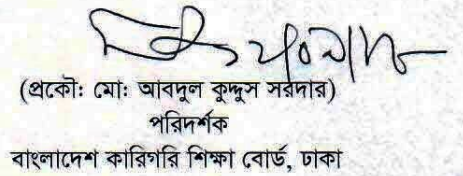 (প্রকৌ: মো: আবদুল কুদ্দুস সরদার)
পরিদর্শক
বাংলাদেশ কারিগরি শিক্ষা বোর্ড, ঢাকা